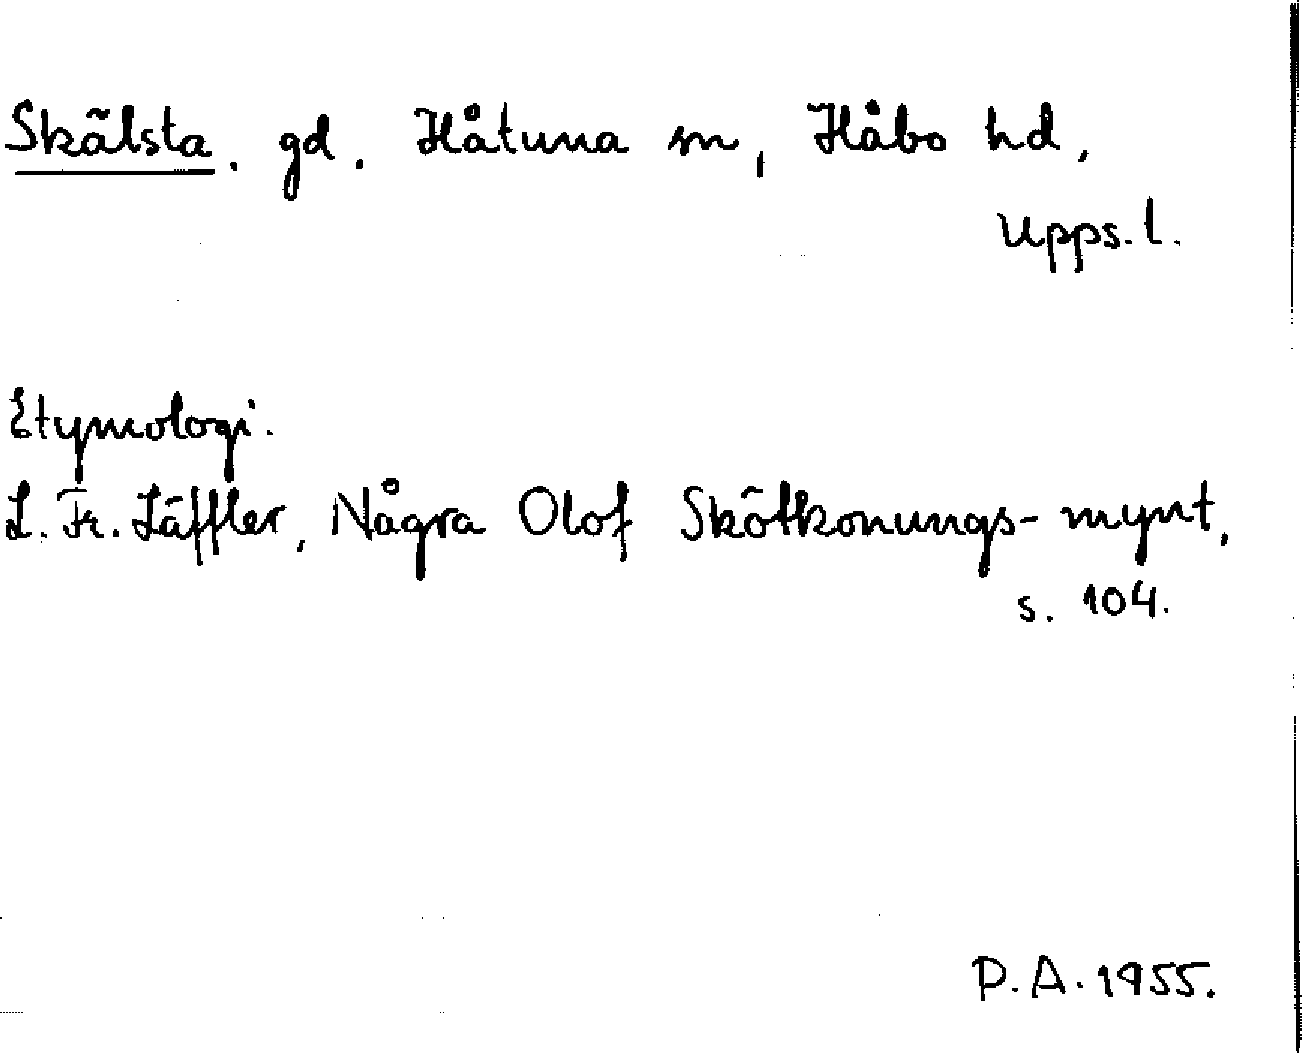 Skälsta. gd. Håtuna sn, Håbo hd,
Upps. l.
Etymologi.
L. Fr. Läffler, Några Olof Skötkonungs-mynt,
s. 104.
P. A. 1955.